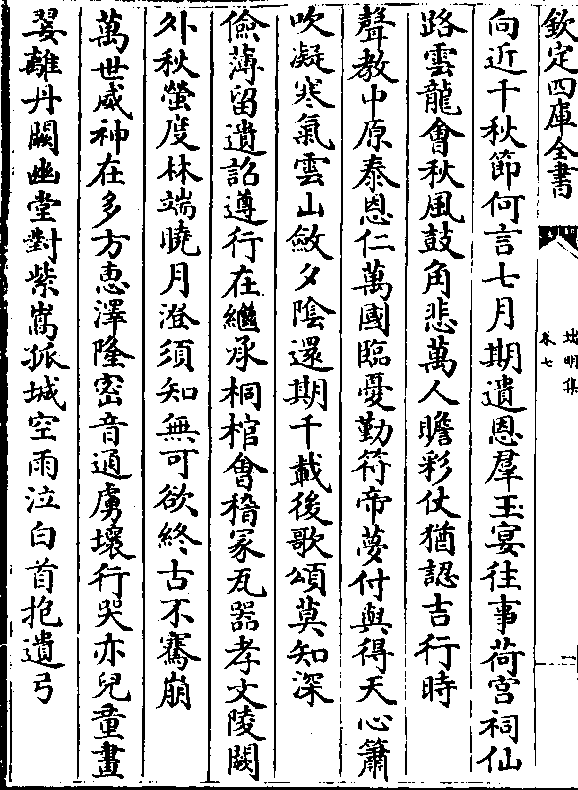 欽定四庫全書
端明集
卷七
向近千秋節何言七月期遺恩羣玉宴往事荷宮祠仙
路雲龍會秋風鼓角悲萬人瞻彩仗猶認吉行時
聲教中原泰恩仁萬國臨憂勤符帝夢付與得天心簫
吹凝寒氣雲山斂夕陰還期千載後歌頌莫知深
儉薄留遺詔遵行在繼承桐棺會稽冢瓦器孝文陵闕
外秋螢度林端曉月澄須知無可欲終古不騫崩
萬世威神在多方恵澤隆密音通虜壤行哭亦兒童畫
翣離丹闕幽堂對紫嵩孤城空雨泣白首抱遺弓